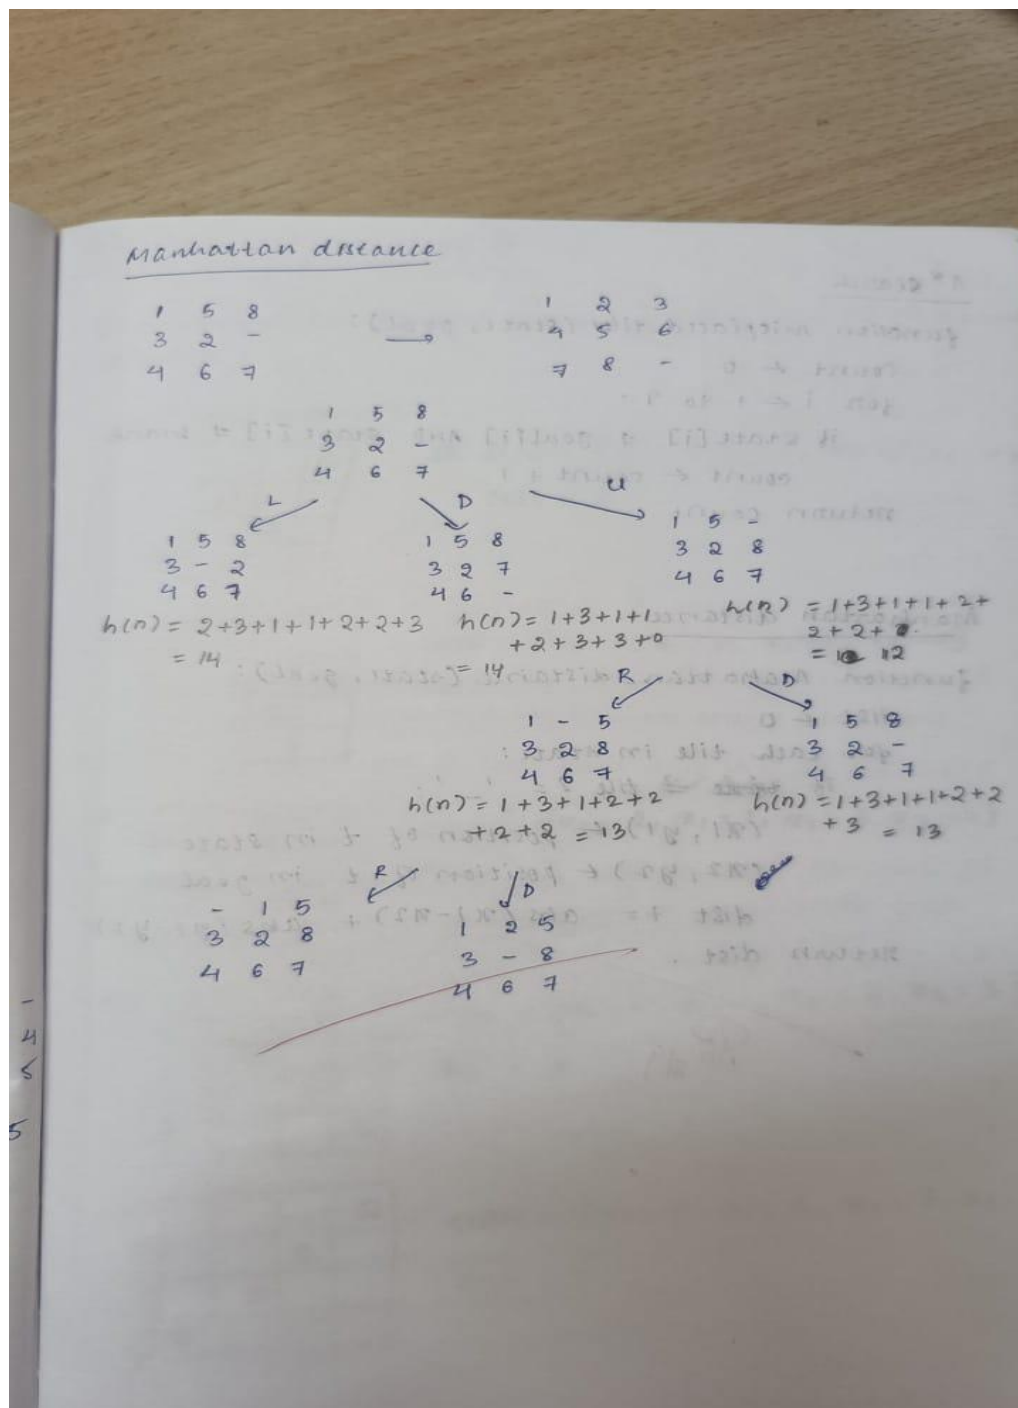 Manhattan distance
1 5 8
3 2 -
4 6 7
→
1 2 3
4 5 6
7 8 -
1 5 8
3 2 -
4 6 7
L D U
1 5 8
3 - 2
4 6 7
h(n) = 2+3+1+1+2+2+3
= 14
1 5 8
3 2 7
4 6 -
h(n) = 1+3+1+1
+2+3+3+0
= 14
1 5 -
3 2 8
4 6 7
h(n) = 1+3+1+1+2+
2+2+
= 12
R D
1 - 5
3 2 8
4 6 7
h(n) = 1+3+1+2+2
+2+2 = 13
1 5 8
3 2 -
4 6 7
h(n) = 1+3+1+1+2+2
+3 = 13
R D
- 1 5
3 2 8
4 6 7
1 2 5
3 - 8
4 6 7
-
4
5
5